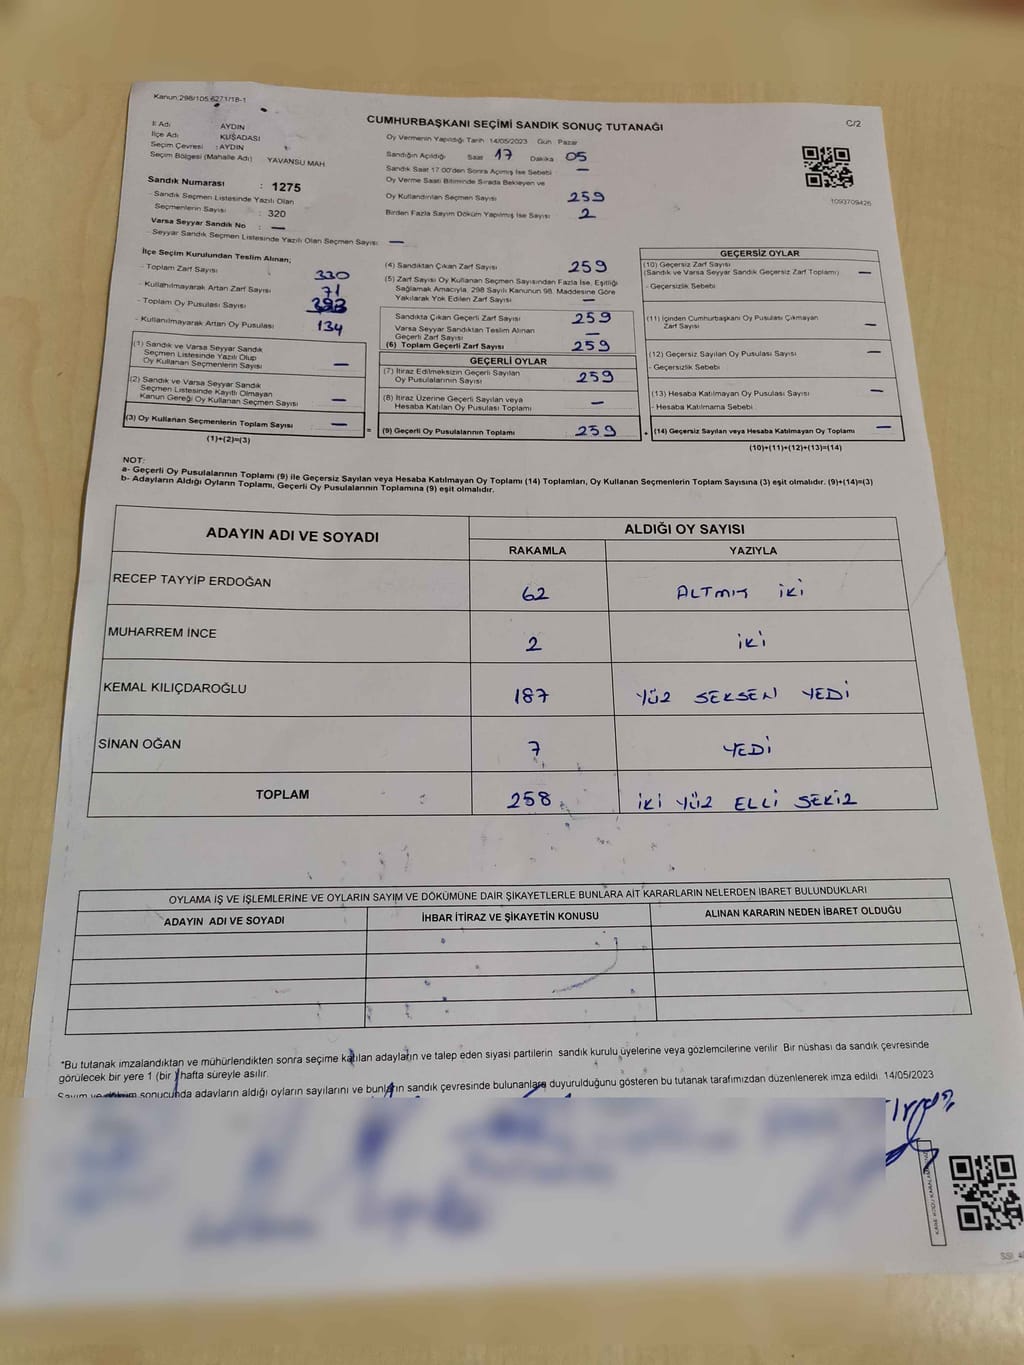 Kanun:298/105,6271/18-1
CUMHURBAŞKANI SEÇİMİ SANDIK SONUÇ TUTANAĞI
C/2
İl Adı : AYDIN
İlçe Adı KUŞADASI
Seçim Çevresi : AYDIN
Seçim Bölgesi (Mahalle Adı) YAVANSU MAH
Sandık Numarası : 1275
- Sandık Seçmen Listesinde Yazılı Olan
Seçmenlerin Sayısı : 320
Varsa Seyyar Sandık No : —
- Seyyar Sandık Seçmen Listesinde Yazılı Olan Seçmen Sayısı : —
Oy Vermenin Yapıldığı Tarih 14/05/2023 Gün Pazar
Sandığın Açıldığı Saat 17 Dakika 05
Sandık Saat 17.00'den Sonra Açılmış İse Sebebi : —
Oy Verme Saati Bitiminde Sırada Bekleyen ve
Oy Kullandırılan Seçmen Sayısı 259
Birden Fazla Sayım Döküm Yapılmış İse Sayısı 2
1093709426
İlçe Seçim Kurulundan Teslim Alınan;
- Toplam Zarf Sayısı 330
- Kullanılmayarak Artan Zarf Sayısı 71
- Toplam Oy Pusulası Sayısı
- Kullanılmayarak Artan Oy Pusulası 134
(1) Sandık ve Varsa Seyyar Sandık
Seçmen Listesinde Yazılı Olup
Oy Kullanan Seçmenlerin Sayısı —
(2) Sandık ve Varsa Seyyar Sandık
Seçmen Listesinde Kayıtlı Olmayan
Kanun Gereği Oy Kullanan Seçmen Sayısı —
(3) Oy Kullanan Seçmenlerin Toplam Sayısı —
(1)+(2)=(3)
=
(4) Sandıktan Çıkan Zarf Sayısı 259
(5) Zarf Sayısı Oy Kullanan Seçmen Sayısından Fazla İse, Eşitliği
Sağlamak Amacıyla, 298 Sayılı Kanunun 98. Maddesine Göre
Yakılarak Yok Edilen Zarf Sayısı —
Sandıkta Çıkan Geçerli Zarf Sayısı 259
Varsa Seyyar Sandıktan Teslim Alınan
Geçerli Zarf Sayısı —
(6) Toplam Geçerli Zarf Sayısı 259
GEÇERLİ OYLAR
(7) İtiraz Edilmeksizin Geçerli Sayılan
Oy Pusulalarının Sayısı 259
(8) İtiraz Üzerine Geçerli Sayılan veya
Hesaba Katılan Oy Pusulası Toplamı —
(9) Geçerli Oy Pusulalarının Toplamı 259
+
GEÇERSİZ OYLAR
(10) Geçersiz Zarf Sayısı
(Sandık ve Varsa Seyyar Sandık Geçersiz Zarf Toplamı) —
- Geçersizlik Sebebi
(11) İçinden Cumhurbaşkanı Oy Pusulası Çıkmayan
Zarf Sayısı —
(12) Geçersiz Sayılan Oy Pusulası Sayısı —
- Geçersizlik Sebebi
(13) Hesaba Katılmayan Oy Pusulası Sayısı —
- Hesaba Katılmama Sebebi
(14) Geçersiz Sayılan veya Hesaba Katılmayan Oy Toplamı —
(10)+(11)+(12)+(13)=(14)
NOT:
a- Geçerli Oy Pusulalarının Toplamı (9) ile Geçersiz Sayılan veya Hesaba Katılmayan Oy Toplamı (14) Toplamları, Oy Kullanan Seçmenlerin Toplam Sayısına (3) eşit olmalıdır. (9)+(14)=(3)
b- Adayların Aldığı Oyların Toplamı, Geçerli Oy Pusulalarının Toplamına (9) eşit olmalıdır.
ADAYIN ADI VE SOYADI ALDIĞI OY SAYISI
RAKAMLA YAZIYLA
RECEP TAYYİP ERDOĞAN 62 ALTMIŞ İKİ
MUHARREM İNCE 2 İKİ
KEMAL KILIÇDAROĞLU 187 YÜZ SEKSEN YEDİ
SİNAN OĞAN 7 YEDİ
TOPLAM 258 İKİ YÜZ ELLİ SEKİZ
OYLAMA İŞ VE İŞLEMLERİNE VE OYLARIN SAYIM VE DÖKÜMÜNE DAİR ŞİKAYETLERLE BUNLARA AİT KARARLARIN NELERDEN İBARET BULUNDUKLARI
ADAYIN ADI VE SOYADI İHBAR İTİRAZ VE ŞİKAYETİN KONUSU ALINAN KARARIN NEDEN İBARET OLDUĞU
*Bu tutanak imzalandıktan ve mühürlendikten sonra seçime katılan adayların ve talep eden siyasi partilerin sandık kurulu üyelerine veya gözlemcilerine verilir Bir nüshası da sandık çevresinde
görülecek bir yere 1 (bir) hafta süreyle asılır.
Sayım ve döküm sonucunda adayların aldığı oyların sayılarını ve bunların sandık çevresinde bulunanlara duyurulduğunu gösteren bu tutanak tarafımızdan düzenlenerek imza edildi. 14/05/2023